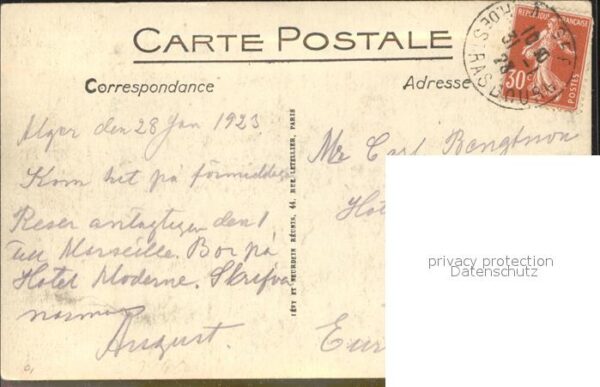 CARTE POSTALE
Correspondance
Adresse
REPUBLIQUE FRANÇAISE
30c
POSTES
R. DE STRASBOURG
Alger den 28 Jan 1923
Kom hit på förmiddag
Reser antagligen den 1
till Marseille. Bor på
Hotel Moderne. Skrifva
August.
LÉVY ET NEURDEIN RÉUNIS, 44, RUE LETELLIER, PARIS
Mr Carl Bengtsson
Hot
Eur
privacy protection
Datenschutz